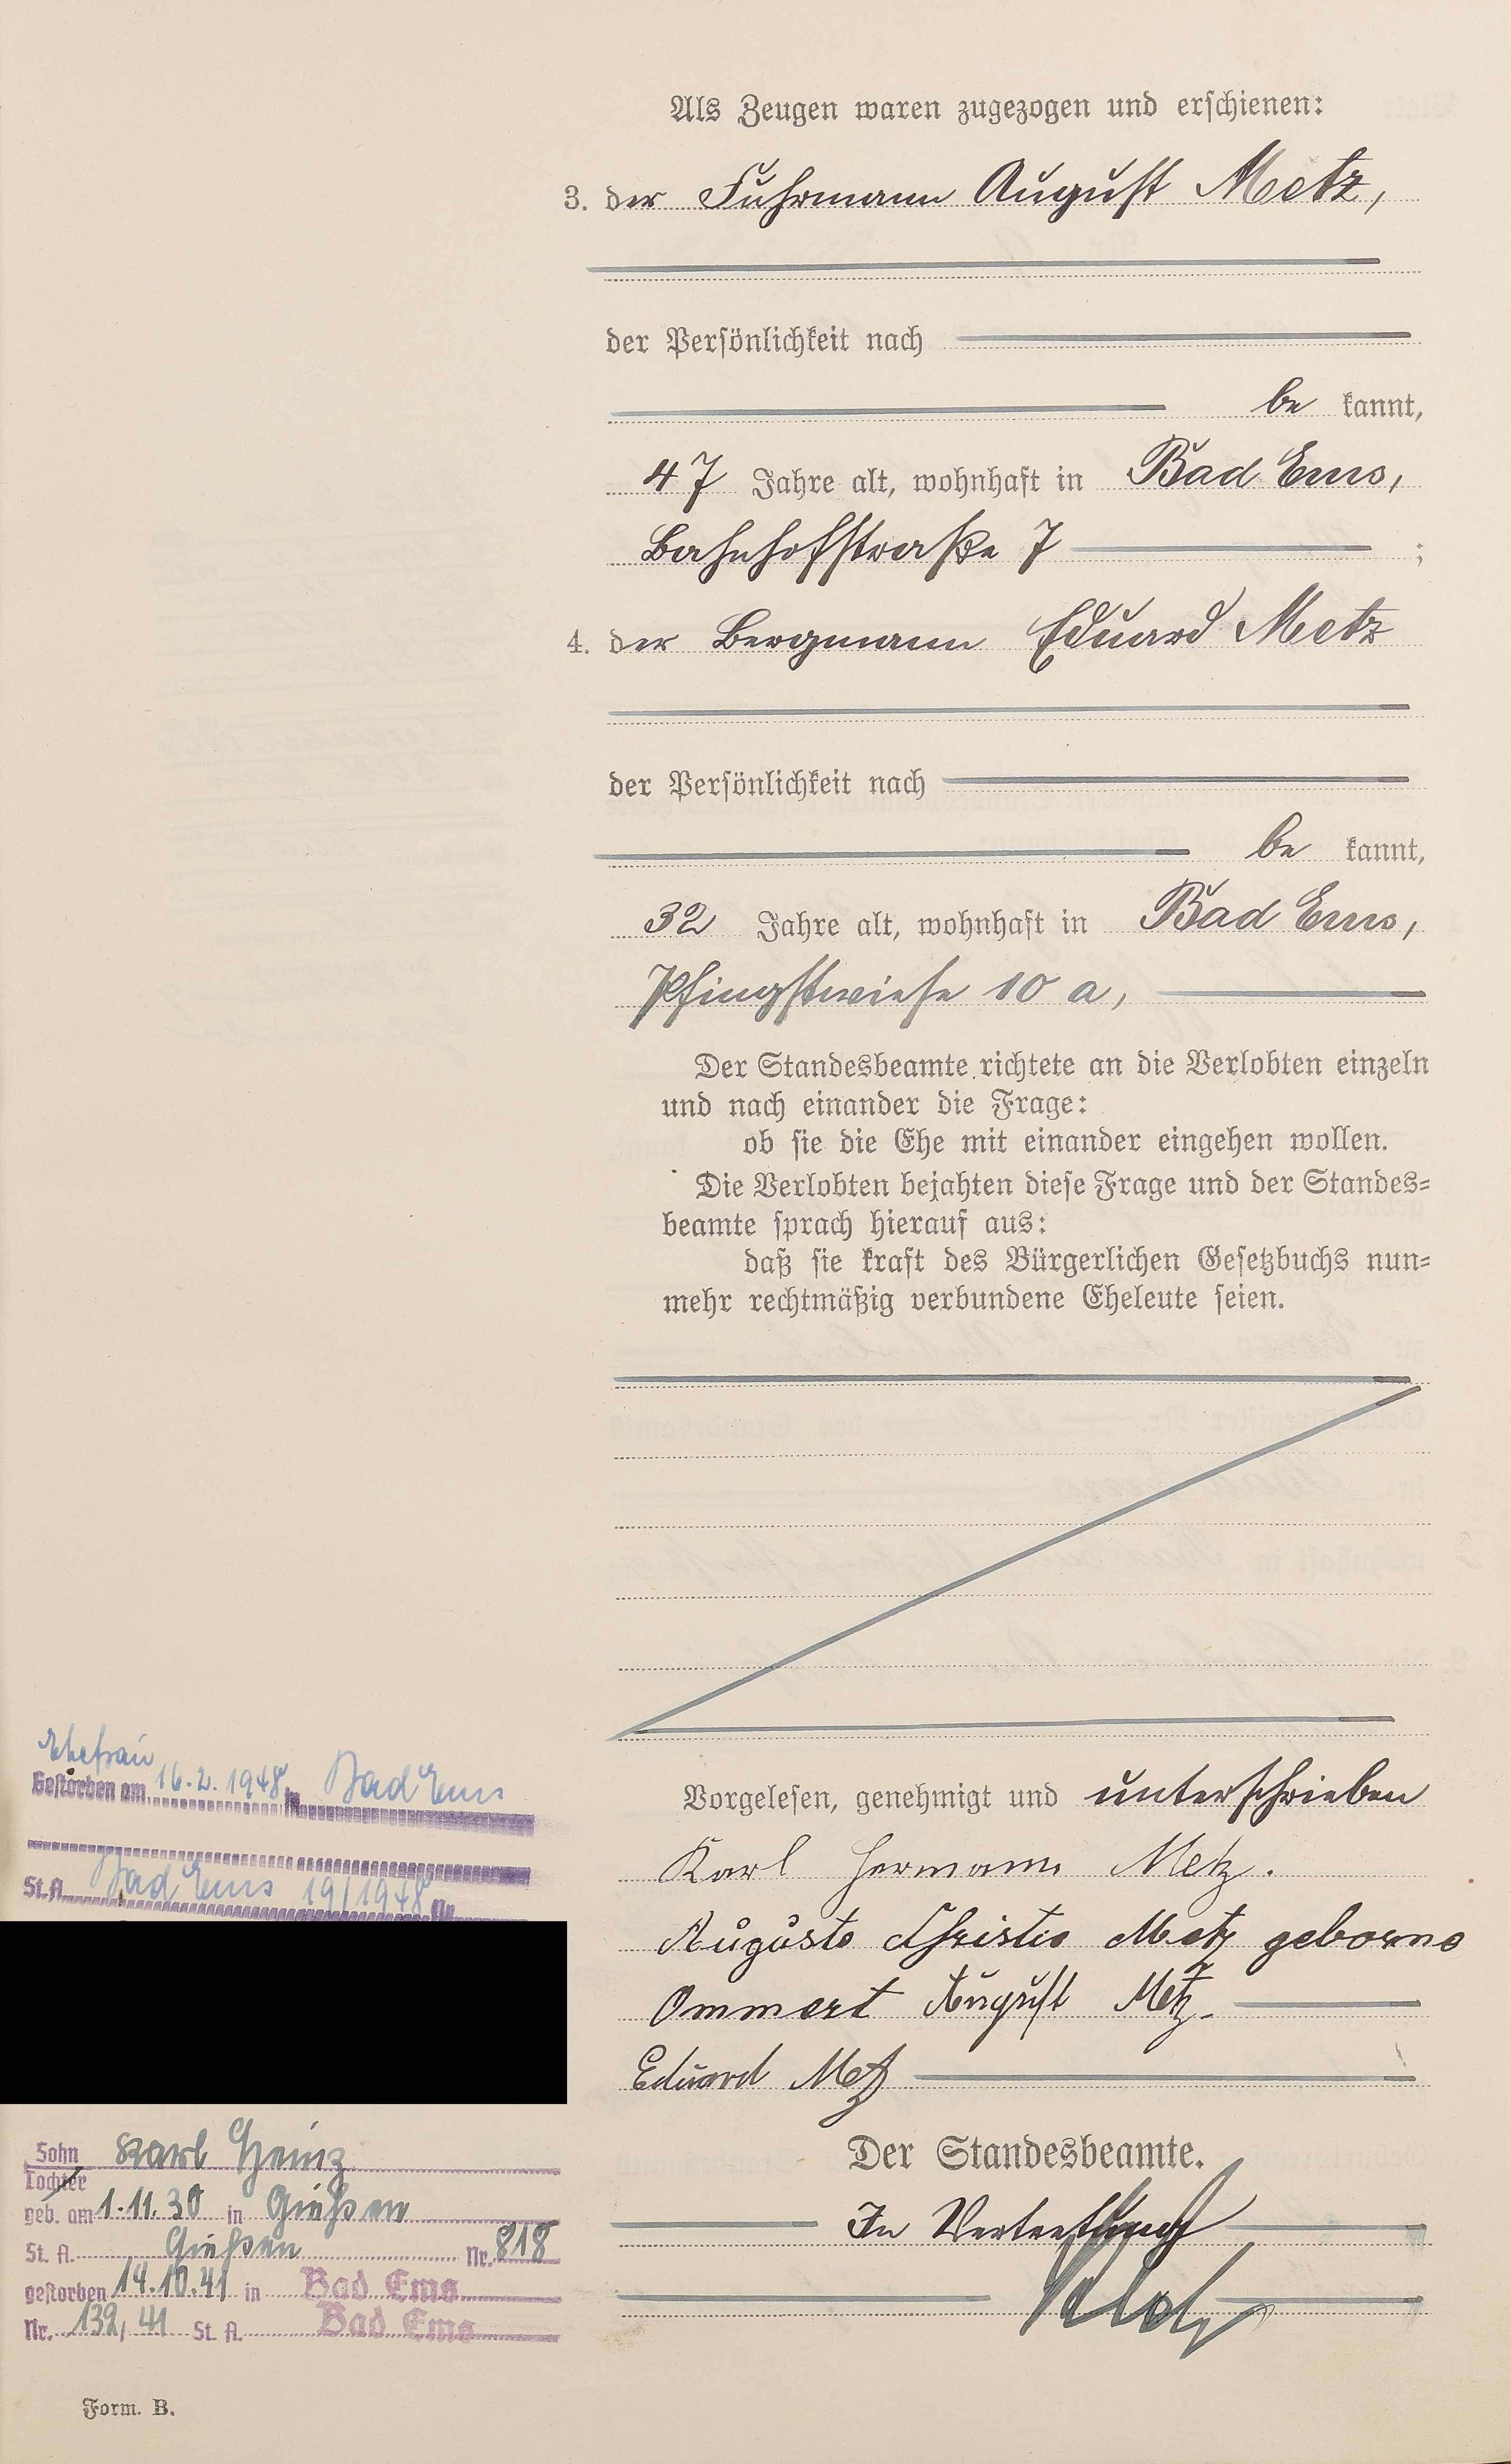 Als Zeugen waren zugezogen und erschienen:
3. der Fuhrmann August Metz,
der Persönlichkeit nach
be kannt,
47 Jahre alt, wohnhaft in Bad Ems,
Bahnhofstraße 7 ;
4. der Bergmann Eduard Metz
der Persönlichkeit nach
be kannt,
32 Jahre alt, wohnhaft in Bad Ems,
Pfingstwiese 10 a,
Der Standesbeamte richtete an die Verlobten einzeln
und nach einander die Frage:
ob sie die Ehe mit einander eingehen wollen.
Die Verlobten bejahten diese Frage und der Standes-
beamte sprach hierauf aus:
daß sie kraft des Bürgerlichen Gesetzbuchs nun-
mehr rechtmäßig verbundene Eheleute seien.
Vorgelesen, genehmigt und unterschrieben
Karl Hermann Metz.
Auguste Christie Metz geborne
Ommert August Metz.
Eduard Metz
Der Standesbeamte.
In Vertretung
Ehefrau
Gestorben am 16.2.1948 in Bad Ems
St.A. Bad Ems 19/1948 Nr.
Sohn Karl Heinz
Tochter
geb. am 1.11.30 in Gießen
St. A. Gießen Nr. 818
gestorben 14.10.41 in Bad Ems
Nr. 139/41 St. A. Bad Ems
Form. B.